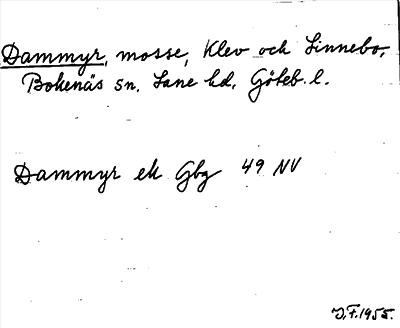 Dammyr, mosse, Klev och Linnebo,
Bokenäs sn, Lane hd, Göteb. l.
Dammyr ek Gbg 49 NV
J.F. 1955.